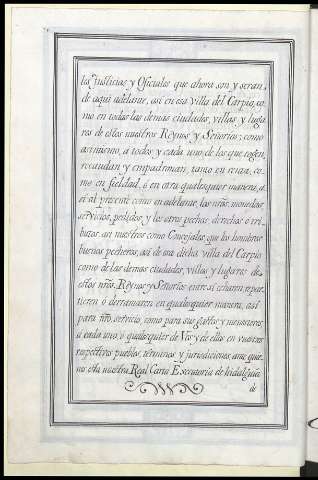 las Justicias y Oficiales que ahora son y seran,
de aqui adelante, asi en esa villa del Carpio, co,
mo en todas las demas ciudades, villas y luga
res de estos nuestros Reynos y Señorios: como
asimismo, a todos y cada uno de los que cogen,
recaudan y empadrinan, tanto en renta, co,
mo en fieldad, ó en otra qualesquier manera, a
si al presente como en adelante, las nrãs. monedas
servicios, pedidos y los otros pechos, derechos o tri
butos asi nuestros como Concejales, que los hombres
buenos pecheros, asi de esa dicha villa del Carpio
como de las demas ciudades, villas y lugares de
estos nrõs. Reynos y Señorios entre si echaren repar
tieren ó derramaren en qualesquier manera, asi
para nrõ. servicio, como para sus gastos y menesteres,
a cada uno, ó qualesquier de Vos y de ellos en vuestros
respectivos pueblos, terminos y jurisdiciones, ante quie,
nes esta nuestra Real Carta Executoria de hidalguia
de